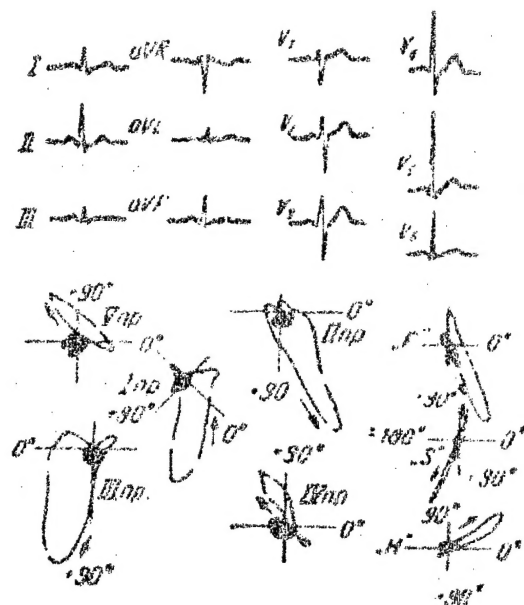 I aVR V₁ V₄
II aVL V₂ V₅
III aVF V₃ V₆
-90°
Vпр
0°
Iпр
+90°
0°
0°
IIIпр.
+90°
0°
IIпр
+90
-90°
IVпр
0°
„F"
0°
+90°
±180°
„S"
-90°
90°
„H"
0°
+90°